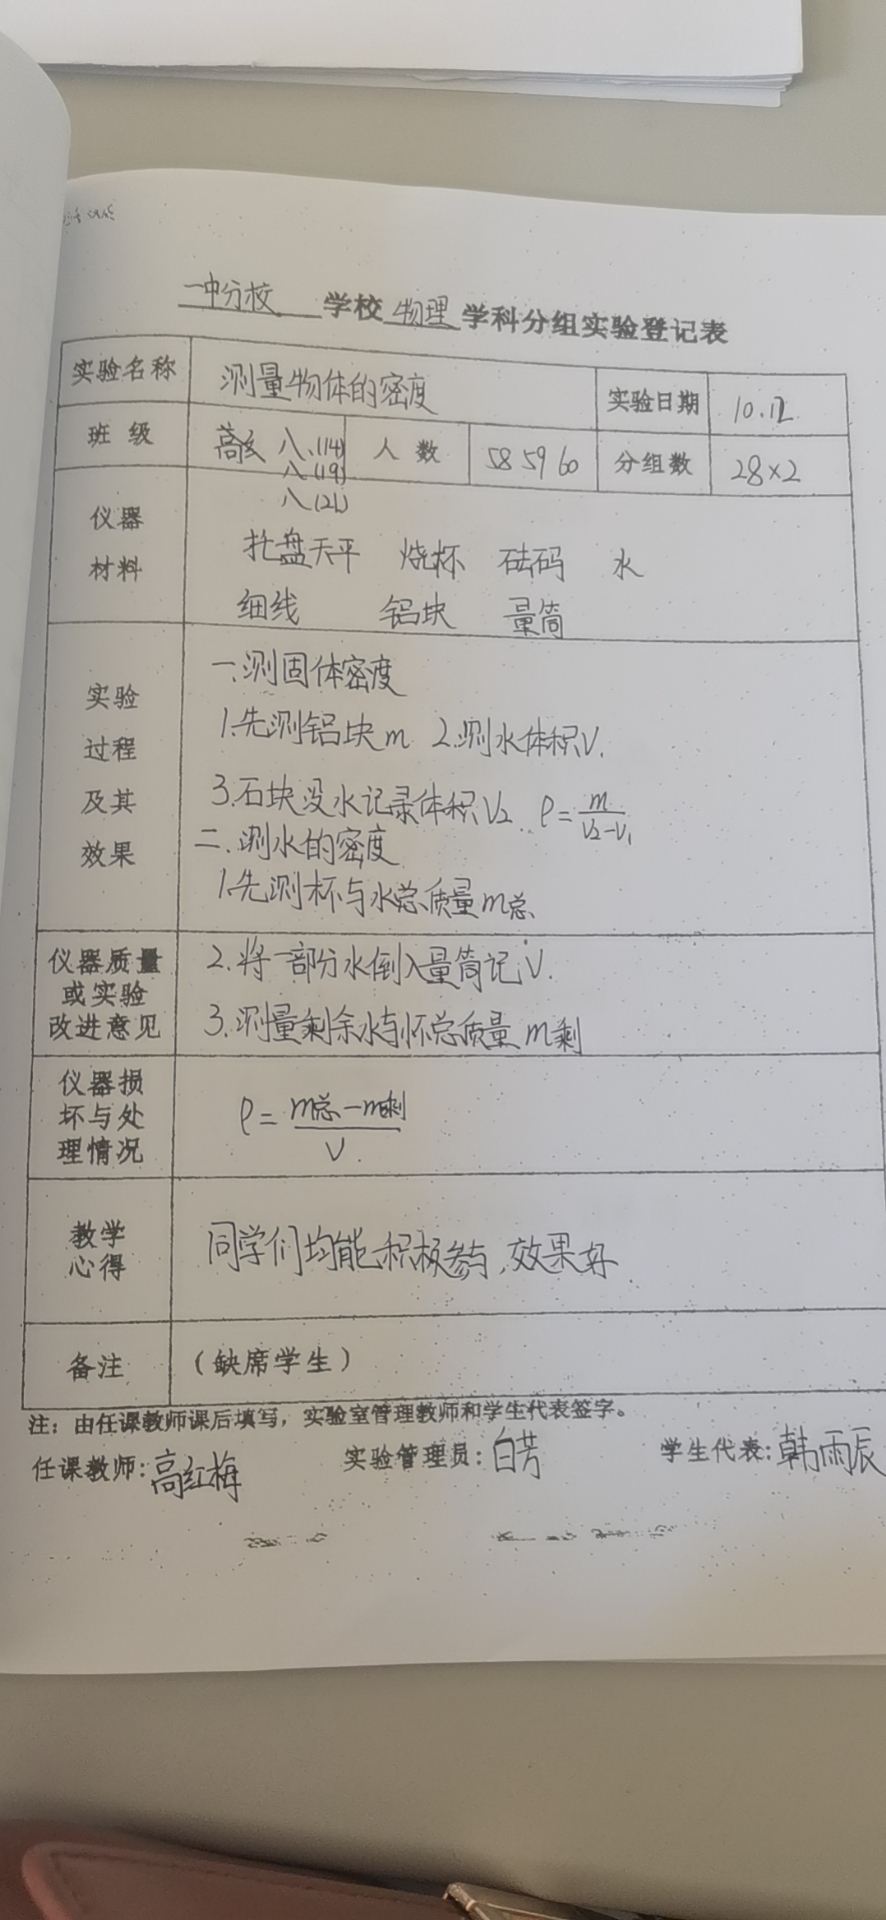 一中分校 学校 物理 学科分组实验登记表
实验名称 测量物体的密度 实验日期 10.12
班级 高红 八.(14) 人数 58 59 60 分组数 28×2
八(19)
八(21)
仪器
材料
托盘天平 烧杯 砝码 水
细线 铝块 量筒
实验
过程
及其
效果
一.测固体密度
1.先测铝块m 2.测水体积V1
3.石块没水记录体积V2 ρ=m/(V2-V1)
二.测水的密度
1.先测杯与水总质量m总
仪器质量
或实验
改进意见
2.将一部分水倒入量筒记V.
3.测量剩余水与杯总质量m剩
仪器损
坏与处
理情况
ρ=(m总-m剩)/V
教学
心得
同学们均能积极参与,效果好
备注 (缺席学生)
注:由任课教师课后填写,实验室管理教师和学生代表签字。
任课教师:高红梅 实验管理员:白芳 学生代表:韩雨辰